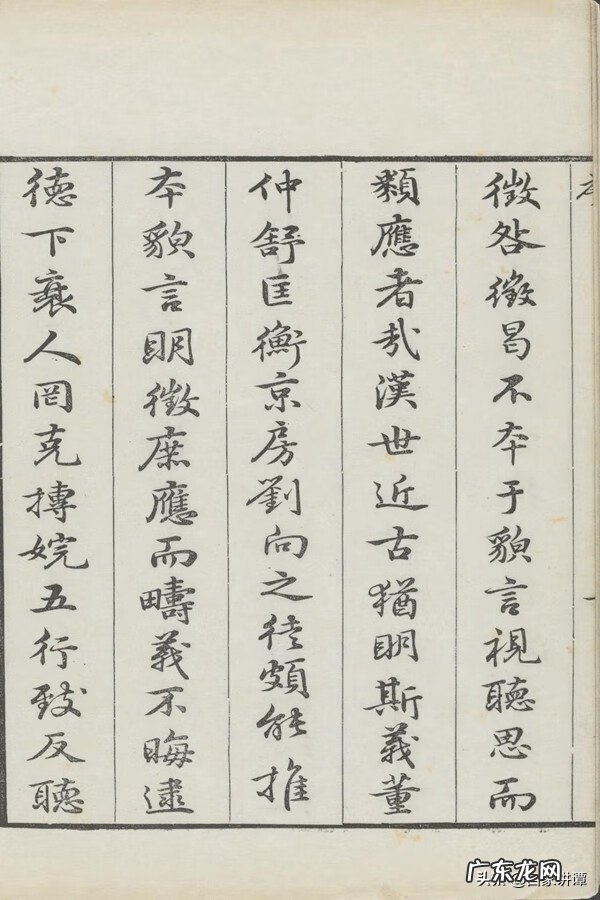 徵咎徵曷不本于貌言視聽思而
類應者哉漢世近古猶明斯義董
仲舒匡衡京房劉向之徒頗能推
本貌言明徵庶應而疇義不晦逮
德下衰人罔克摶婉五行致反聽
广东龙网